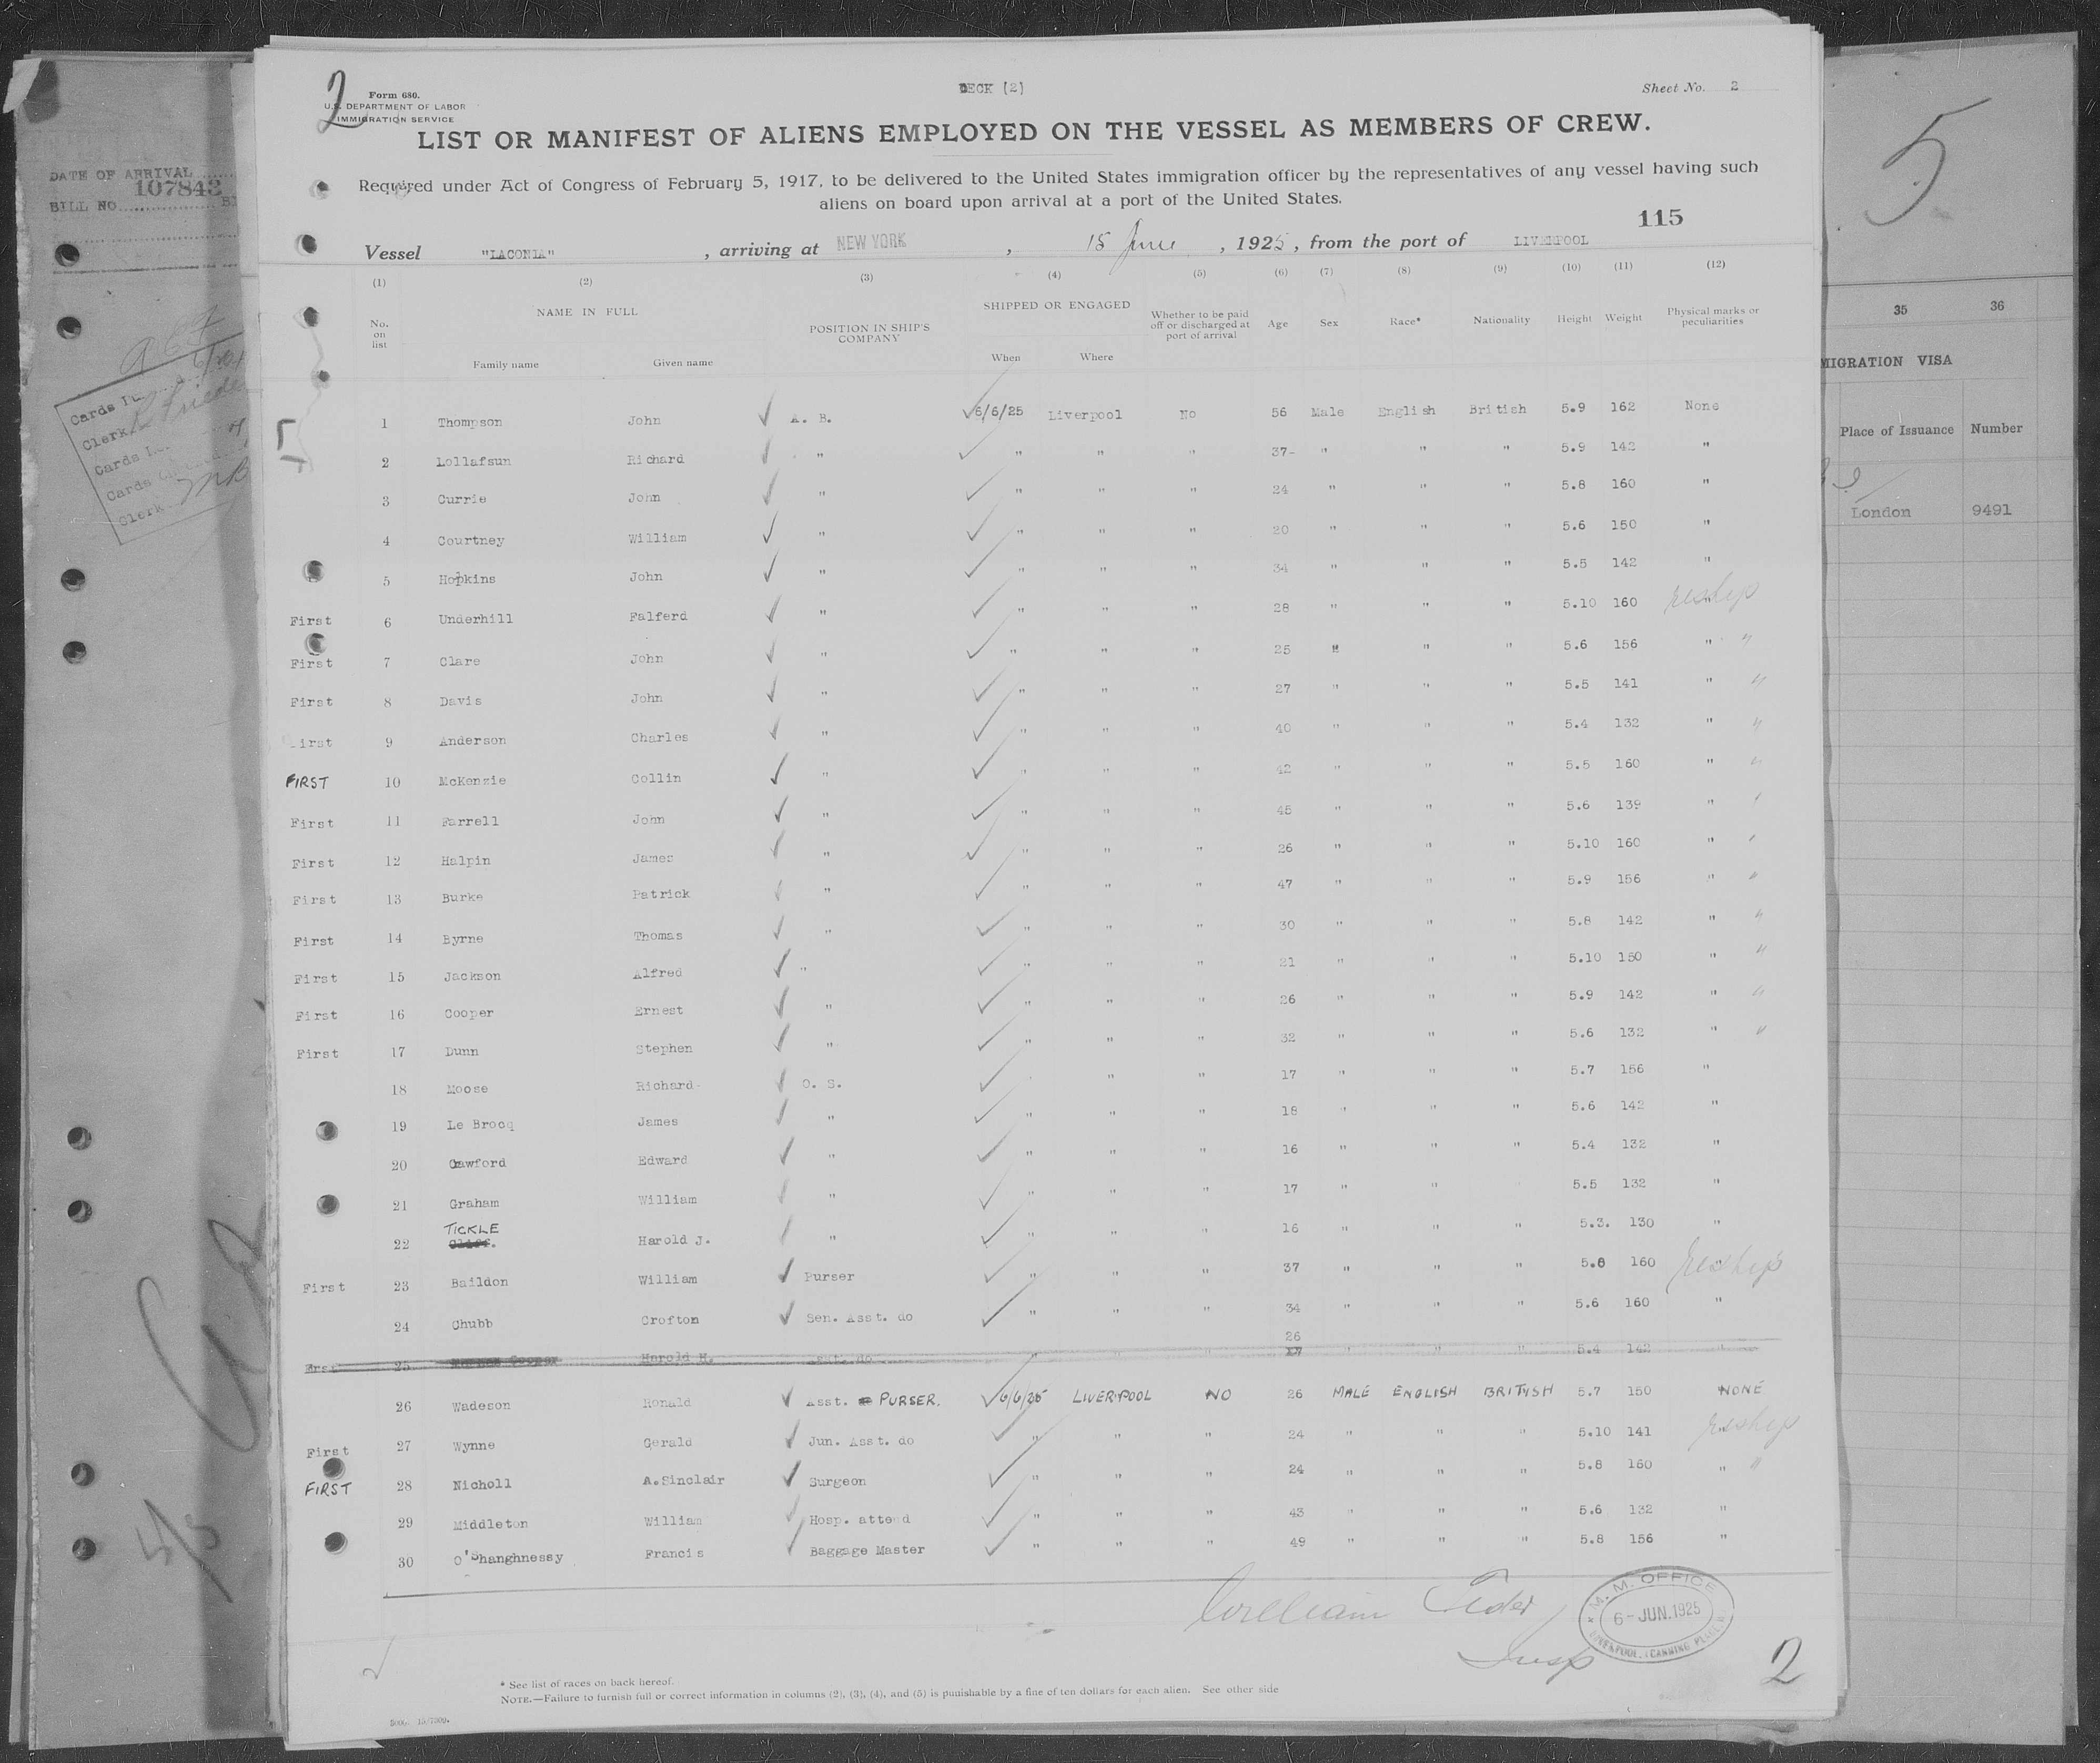 2
Form 680.
U.S. DEPARTMENT OF LABOR
IMMIGRATION SERVICE
DECK (2)
Sheet No. 2
LIST OR MANIFEST OF ALIENS EMPLOYED ON THE VESSEL AS MEMBERS OF CREW.
Required under Act of Congress of February 5, 1917, to be delivered to the United States immigration officer by the representatives of any vessel having such
aliens on board upon arrival at a port of the United States.
115
Vessel "LACONIA", arriving at NEW YORK, 15 June, 1925, from the port of LIVERPOOL
(1) (2) (3) (4) (5) (6) (7) (8) (9) (10) (11) (12)
No. on list
NAME IN FULL
Family name Given name
POSITION IN SHIP'S COMPANY
SHIPPED OR ENGAGED
When Where
Whether to be paid off or discharged at port of arrival
Age Sex Race* Nationality Height Weight
Physical marks or peculiarities
1 Thompson John A. B. 6/6/25 Liverpool No 56 Male English British 5.9 162 None
2 Lollafsun Richard " " " " 37 " " " 5.9 142 "
3 Currie John " " " " 24 " " " 5.8 160 "
4 Courtney William " " " " 20 " " " 5.6 150 "
5 Hopkins John " " " " 34 " " " 5.5 142 "
First 6 Underhill Falferd " " " " 28 " " " 5.10 160 " reship
First 7 Clare John " " " " 25 " " " 5.6 156 " "
First 8 Davis John " " " " 27 " " " 5.5 141 " "
First 9 Anderson Charles " " " " 40 " " " 5.4 132 " "
FIRST 10 McKenzie Collin " " " " 42 " " " 5.5 160 " "
First 11 Farrell John " " " " 45 " " " 5.6 139 " "
First 12 Halpin James " " " " 26 " " " 5.10 160 " "
First 13 Burke Patrick " " " " 47 " " " 5.9 156 " "
First 14 Byrne Thomas " " " " 30 " " " 5.8 142 " "
First 15 Jackson Alfred " " " " 21 " " " 5.10 150 " "
First 16 Cooper Ernest " " " " 26 " " " 5.9 142 " "
First 17 Dunn Stephen " " " " 32 " " " 5.6 132 " "
18 Moose Richard O. S. " " 17 " " " 5.7 156 "
19 Le Brocq James " " " " 18 " " " 5.6 142 "
20 Cawford Edward " " " " 16 " " " 5.4 132 "
21 Graham William " " " " 17 " " 5.5 132 "
22 TICKLE Harold J. " " " " 16 " " " 5.3. 130 "
First 23 Baildon William Purser " " " 37 " " " 5.8 160 reship
24 Chubb Crofton Sen. Asst. do " " " 34 " " " 5.6 160 "
25 Cooper Harold H. Asst. do " " " 26 " " " 5.4 142 "
26 Wadeson Ronald Asst. PURSER. 6/6/25 LIVERPOOL NO 26 MALE ENGLISH BRITISH 5.7 150 NONE
First 27 Wynne Gerald Jun. Asst. do " " " 24 " " " 5.10 141 " reship
FIRST 28 Nicholl A.Sinclair Surgeon " " " 24 " " " 5.8 160 " "
29 Middleton William Hosp. attend " " " 43 " " " 5.6 132 "
30 O'Shanghnessy Francis Baggage Master " " " 49 " " " 5.8 156 "
William
Insp
M. M. OFFICE
6-JUN.1925
LIVERPOOL, (CANNING PLACE)
2
* See list of races on back hereof.
NOTE.—Failure to furnish full or correct information in columns (2), (3), (4), and (5) is punishable by a fine of ten dollars for each alien. See other side
DATE OF ARRIVAL
107843
BILL NO
Cards
Clerk
Cards
Cards
Clerk
5
35 36
MIGRATION VISA
Place of Issuance Number
London 9491